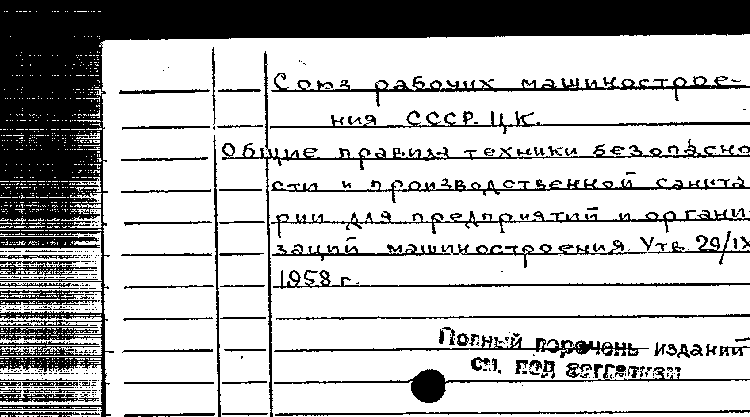 Союз рабочих машинострое-
ния СССР. ЦК.
Общие правила техники безопасно
сти и производственной санита
рии для предприятий и органи
заций машиностроения. Утв. 29/IX
1958 г.
Полный перечень изданий
см. под заглавием